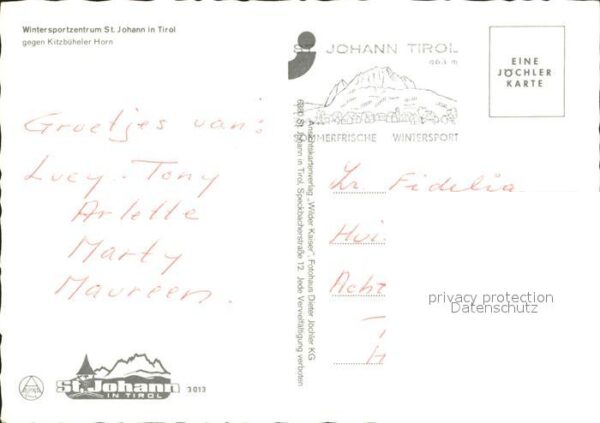 Wintersportzentrum St. Johann in Tirol
gegen Kitzbüheler Horn
ST. JOHANN TIROL
663 m
SOMMERFRISCHE WINTERSPORT
EINE
JÖCHLER
KARTE
Groetjes van:
Lucy. Tony
Arlette
Marty
Maureen.
Ansichtskartenverlag „Wilder Kaiser", Fotohaus Dieter Jöchler KG
6380 St. Johann in Tirol, Speckbacherstraße 12. Jede Vervielfältigung verboten
Zr. Fidelia
Hui
Acht
H
privacy protection
Datenschutz
St. Johann
IN TIROL
3 013